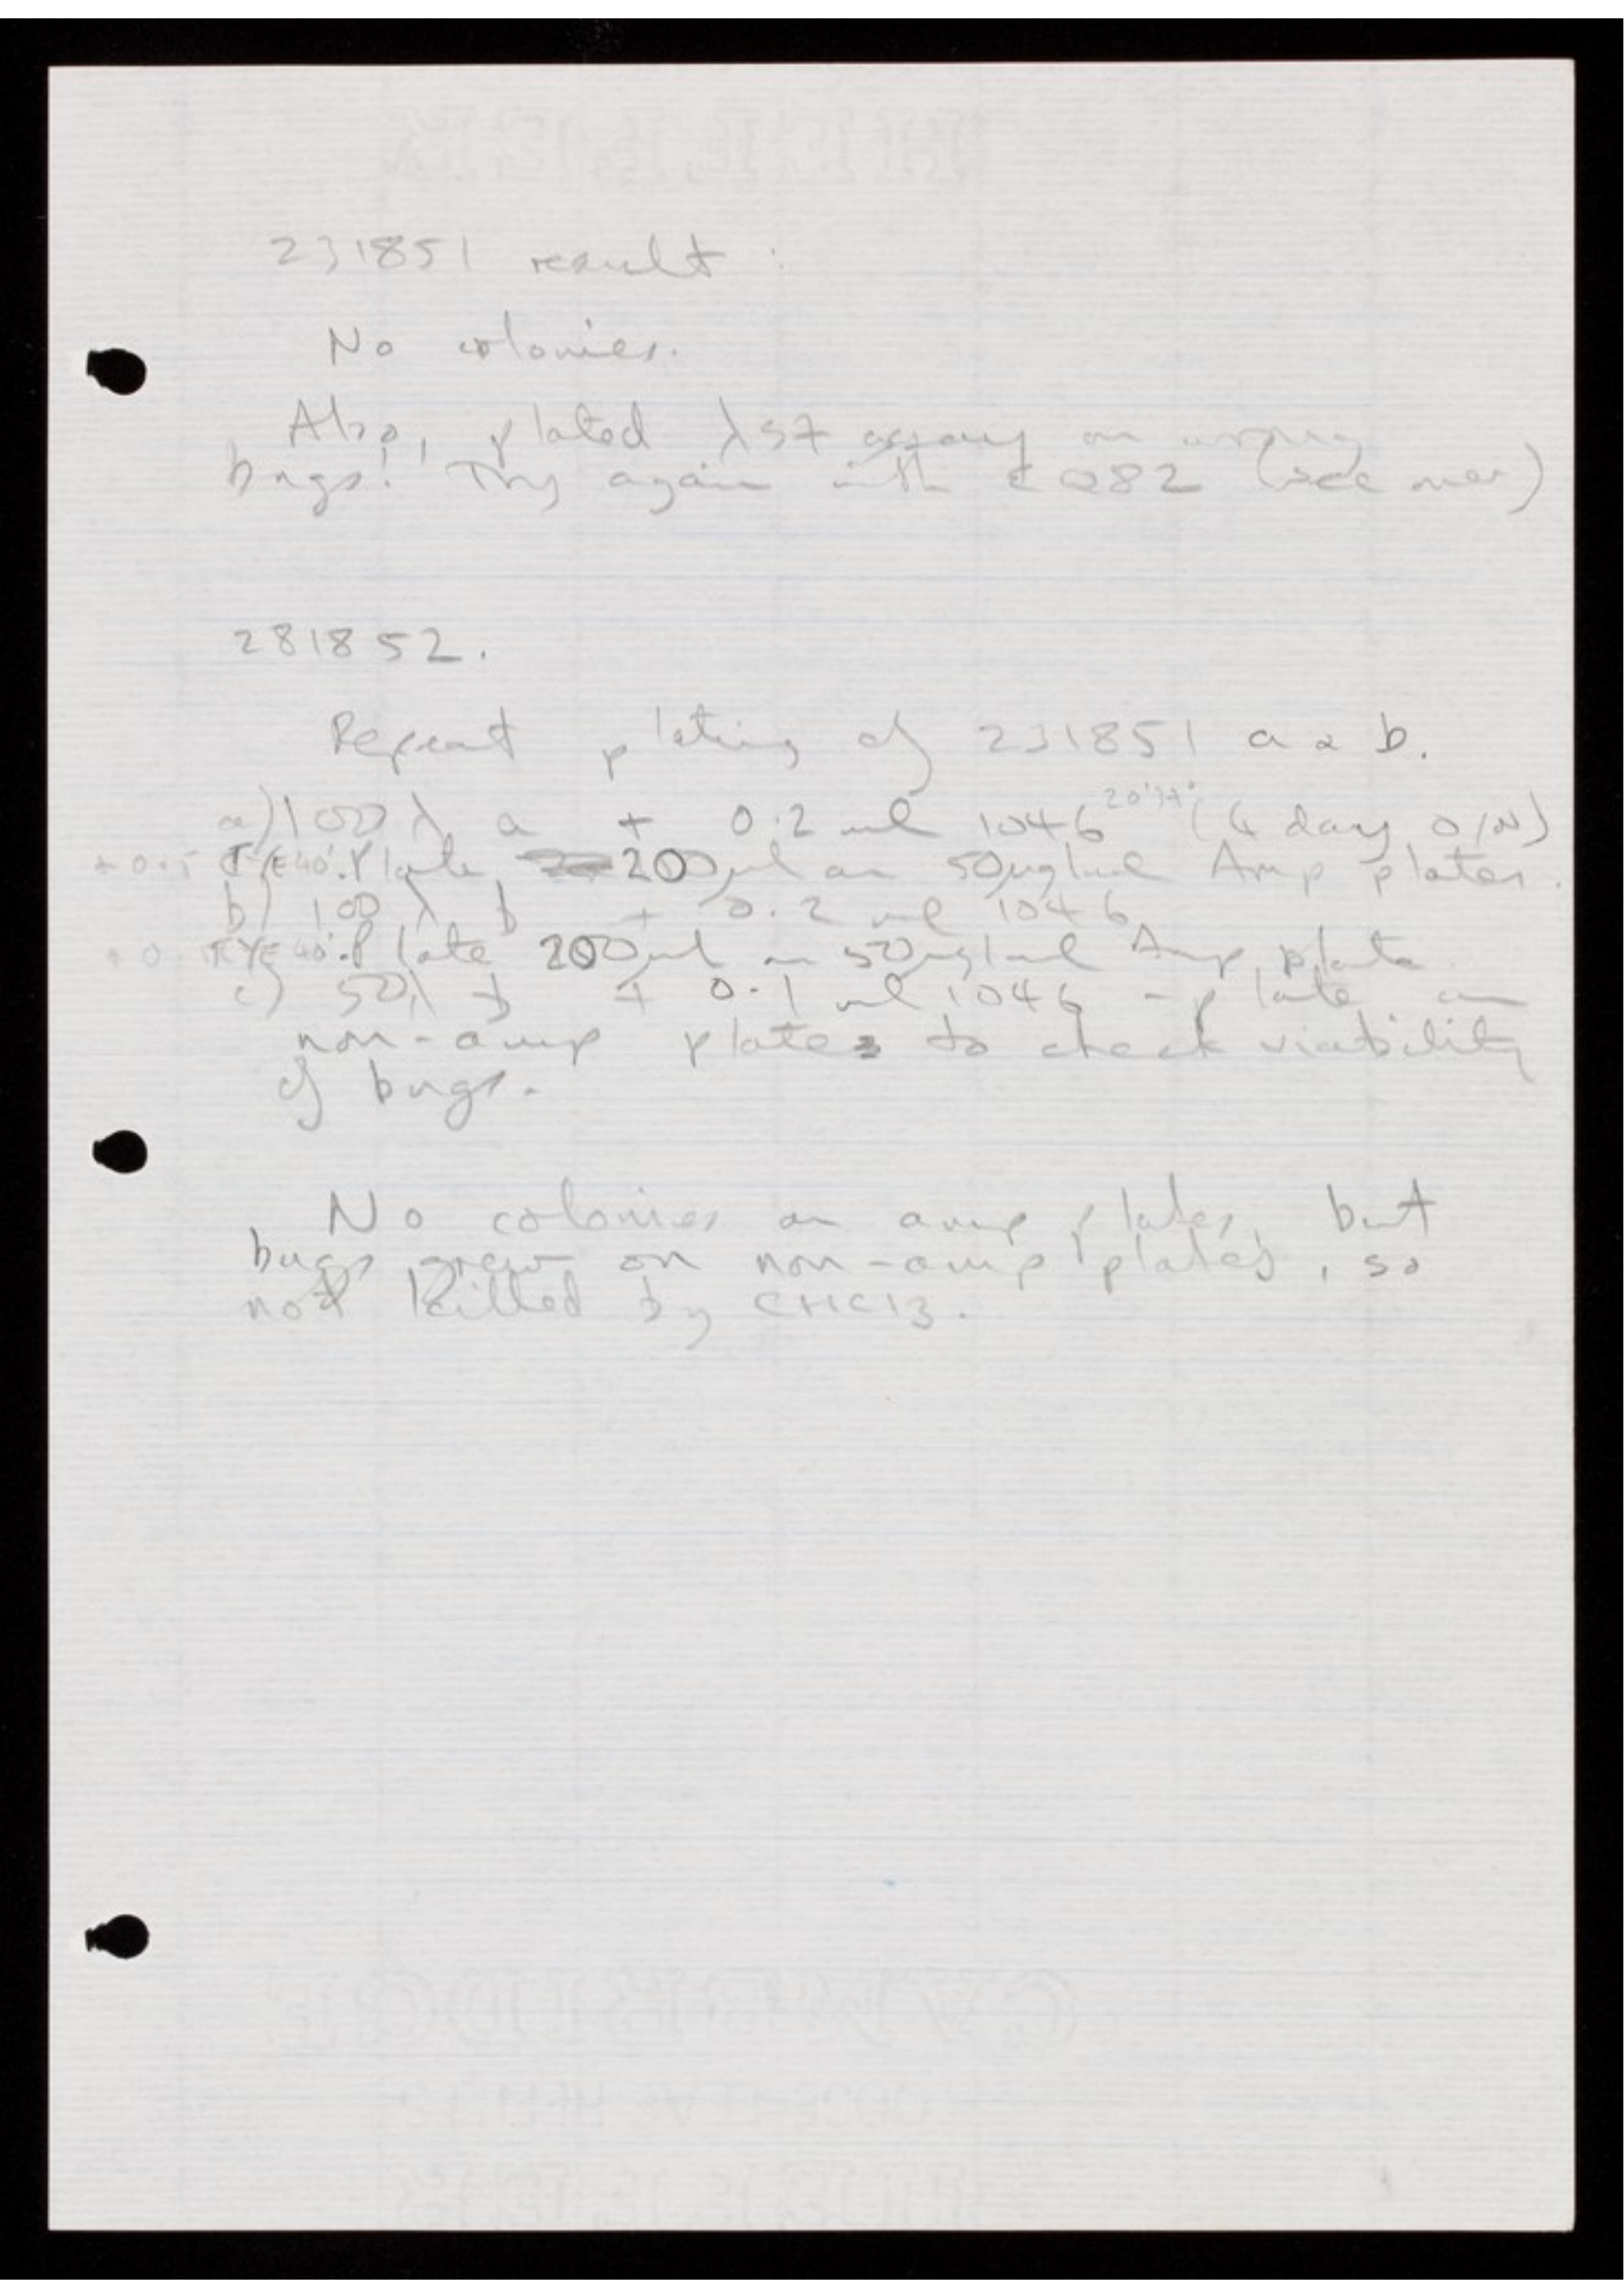 231851 result:
No colonies.
Also, plated λ57 assay on wrong
bugs! Try again with Q282 (see over)
281852.
Repeat plating of 231851 a & b.
a) 100 λ a + 0.2 ml 1046 (4 day O/N)
+ 0.5 TYE 40'. Plate 200μl on 50μg/ml Amp plates.
b) 100 λ b + 0.2 ml 1046
TYE 40'. Plate 200μl on 50μg/ml Amp plate
c) 50λ b + 0.1 ml 1046 - plate on
non-amp plates to check viability
of bugs.
No colonies on amp plates, but
bugs grew on non-amp plates, so
not killed by CHCl3.